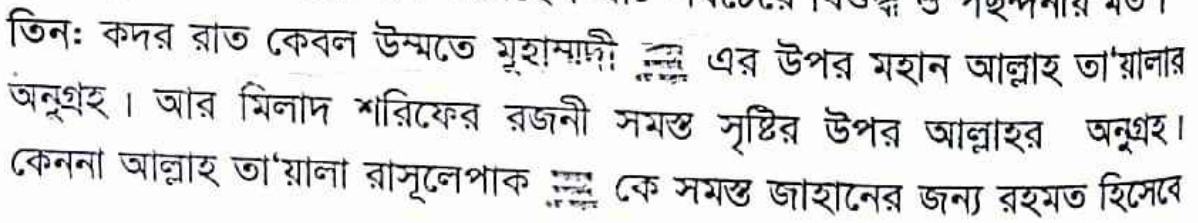 তিন: কদর রাত কেবল উম্মতে মূহাম্মাদী ﷺ এর উপর মহান আল্লাহ তা'য়ালার
অনুগ্রহ। আর মিলাদ শরিফের রজনী সমস্ত সৃষ্টির উপর আল্লাহর অনুগ্রহ।
কেননা আল্লাহ তা'য়ালা রাসূলেপাক ﷺ কে সমস্ত জাহানের জন্য রহমত হিসেবে